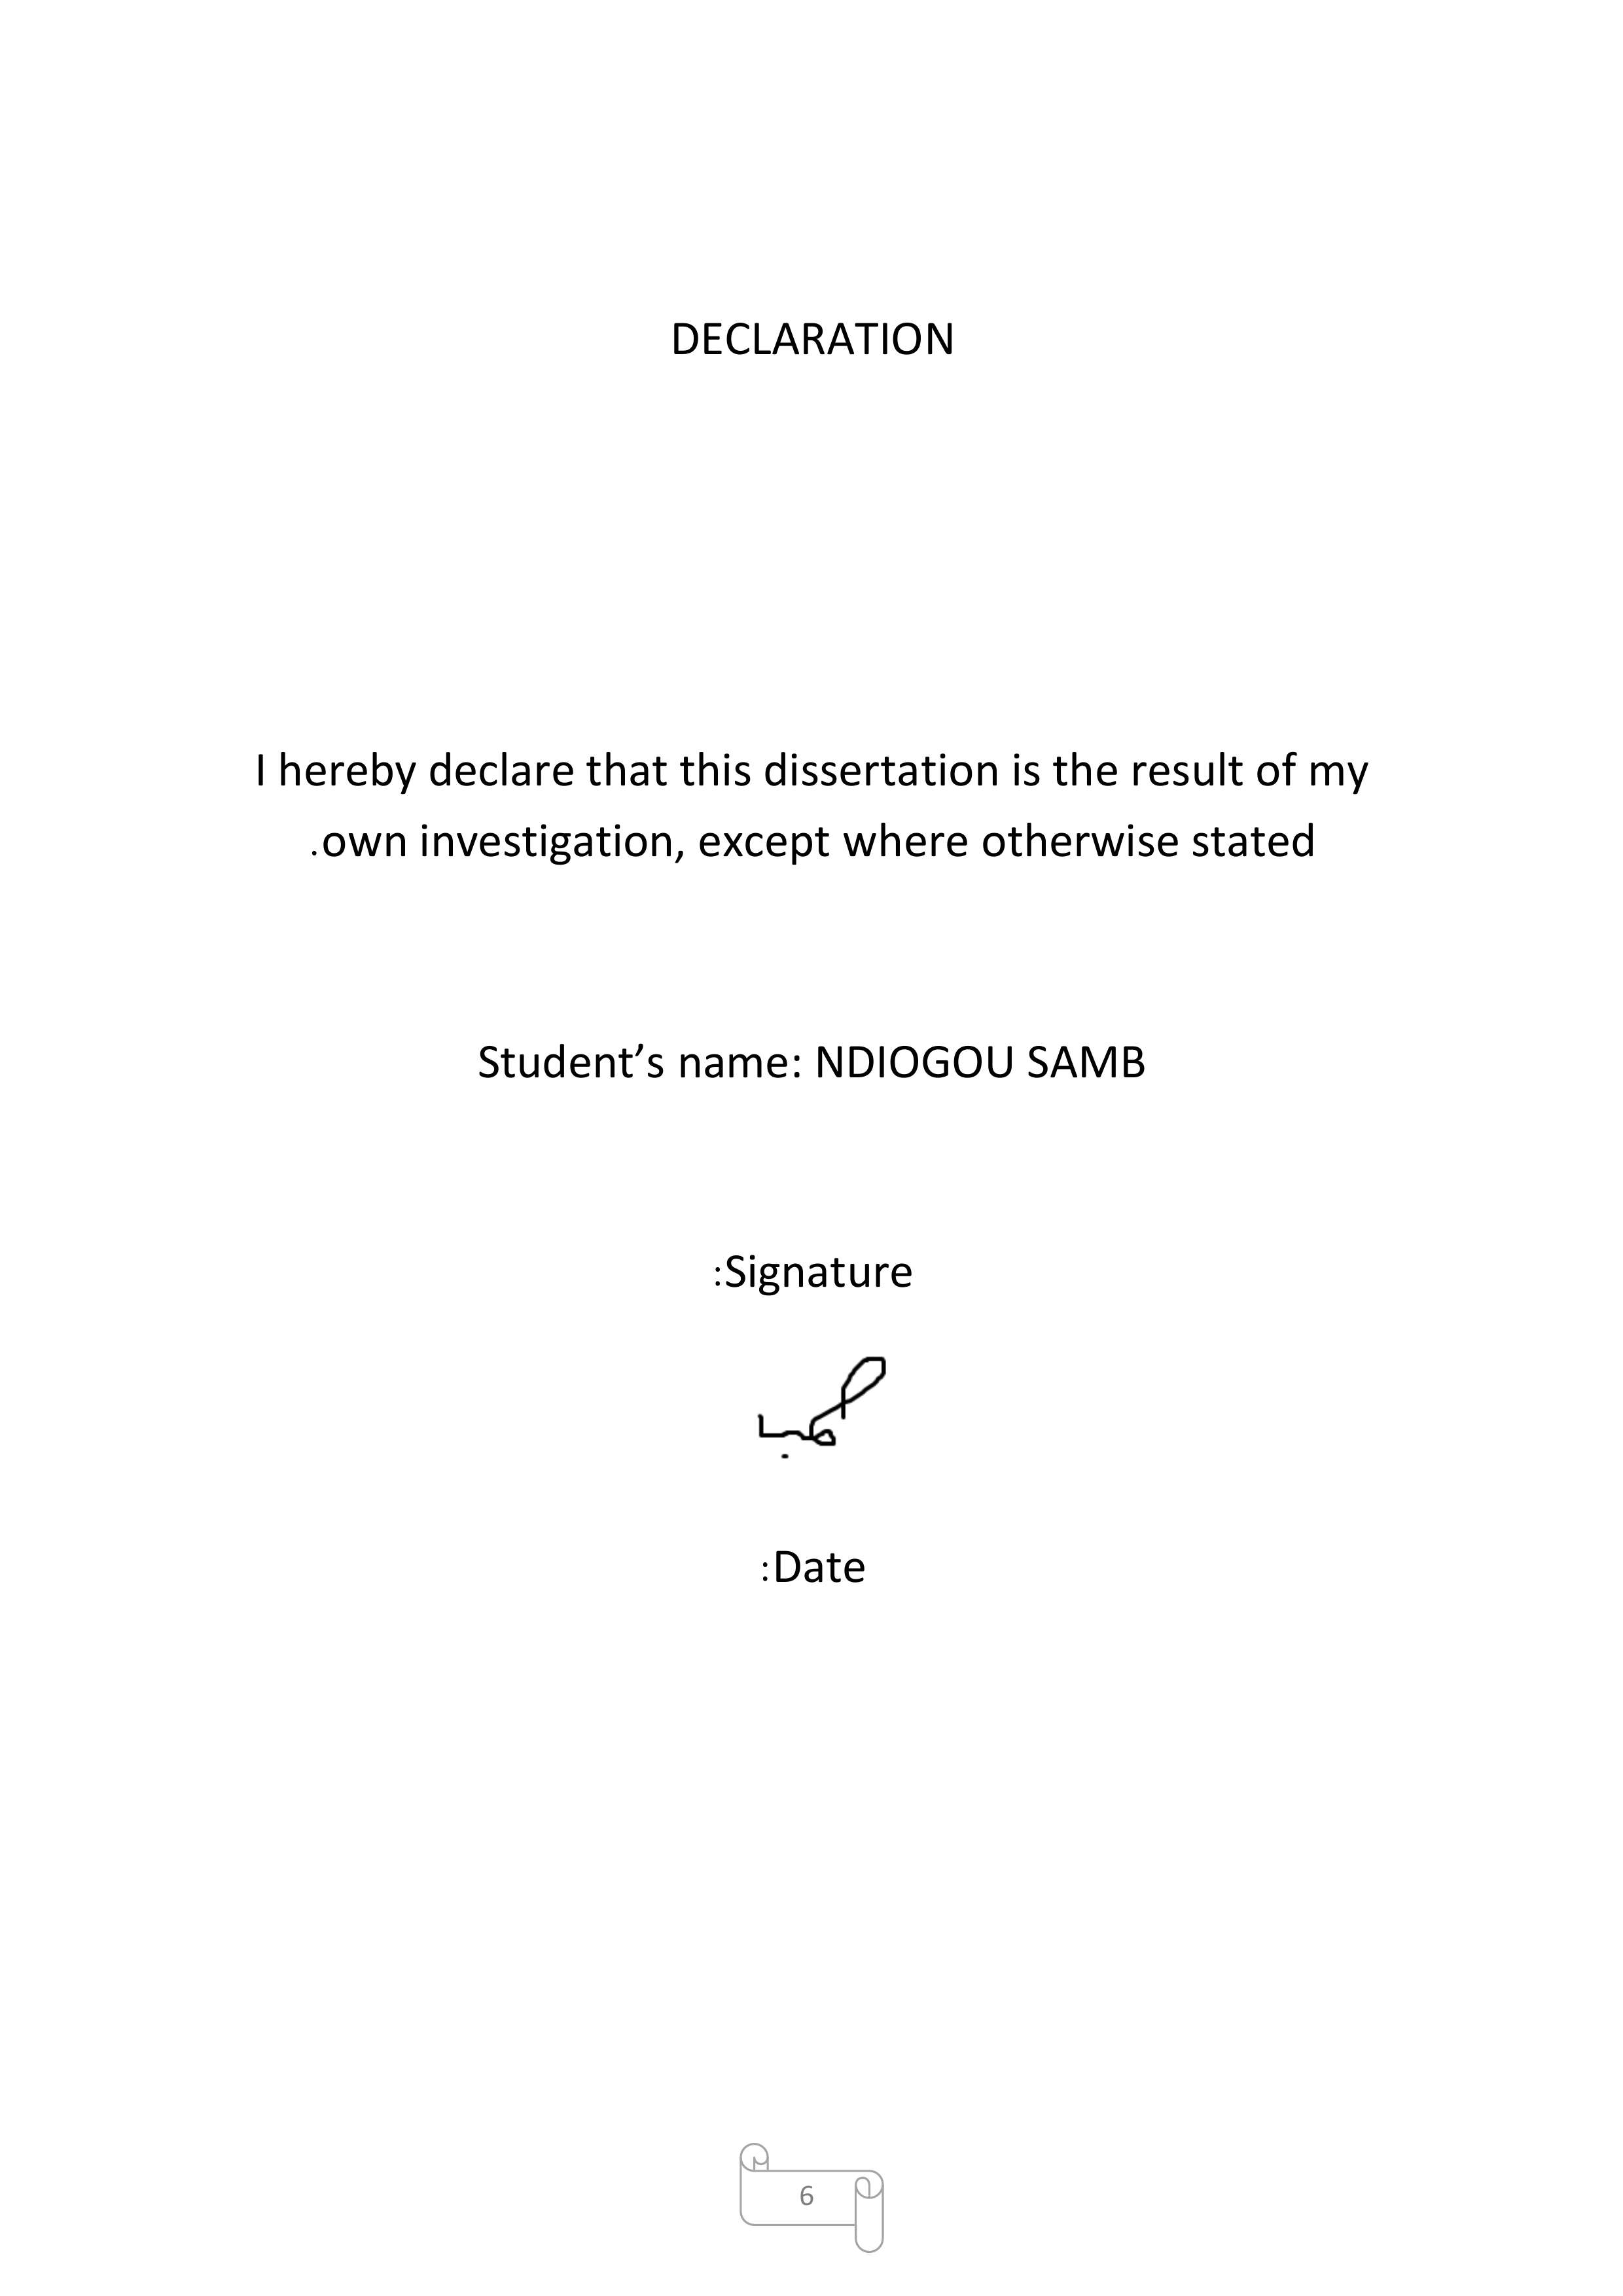 DECLARATION
I hereby declare that this dissertation is the result of my
.own investigation, except where otherwise stated
Student’s name: NDIOGOU SAMB
:Signature
:Date
6